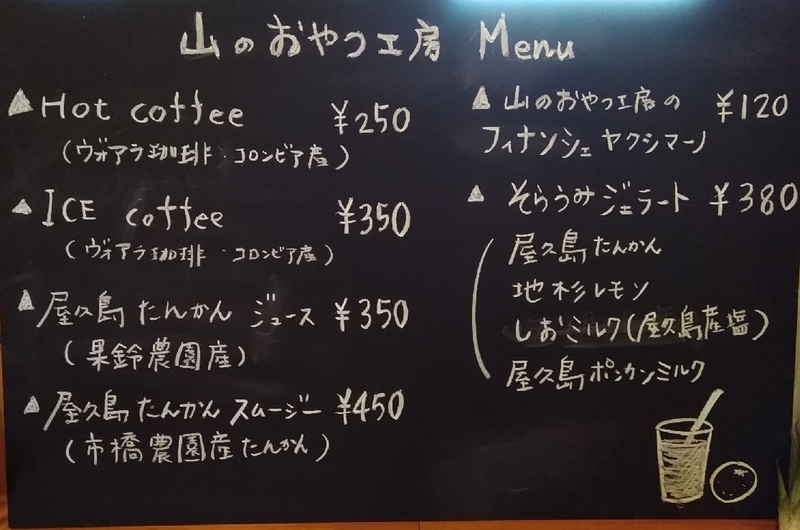 山のおやつ工房 Menu
▲Hot coffee ¥250
(ヴォアラ珈琲・コロンビア産)
▲ICE coffee ¥350
(ヴォアラ珈琲・コロンビア産)
▲屋久島たんかん ジュース ¥350
(果鈴農園産)
▲屋久島たんかん スムージー ¥450
(市橋農園産たんかん)
▲山のおやつ工房の ¥120
フィナンシェ ヤクシマーノ
▲そらうみジェラート ¥380
屋久島たんかん
地杉レモン
しおミルク(屋久島産塩)
屋久島ポンカンミルク